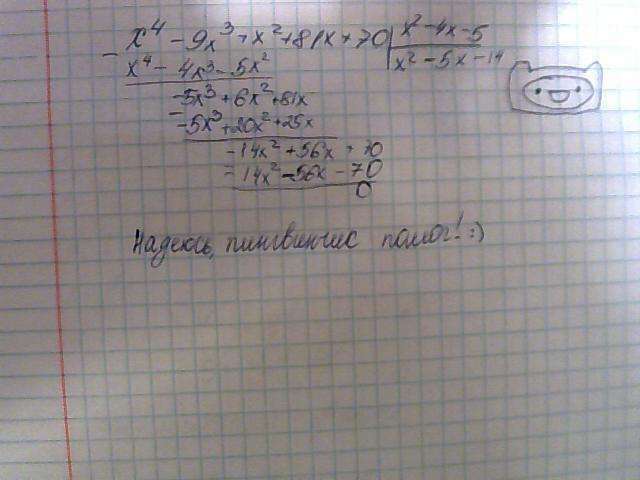 x⁴ - 9x³ + x² + 81x + 70 | x² - 4x - 5
- x⁴ - 4x³ - 5x² | x² - 5x - 14
-5x³ + 6x² + 81x
- -5x³ + 20x² + 25x
-14x² + 56x + 70
- -14x² - 56x - 70
0
Надеюсь, пингвинчик помог! :)